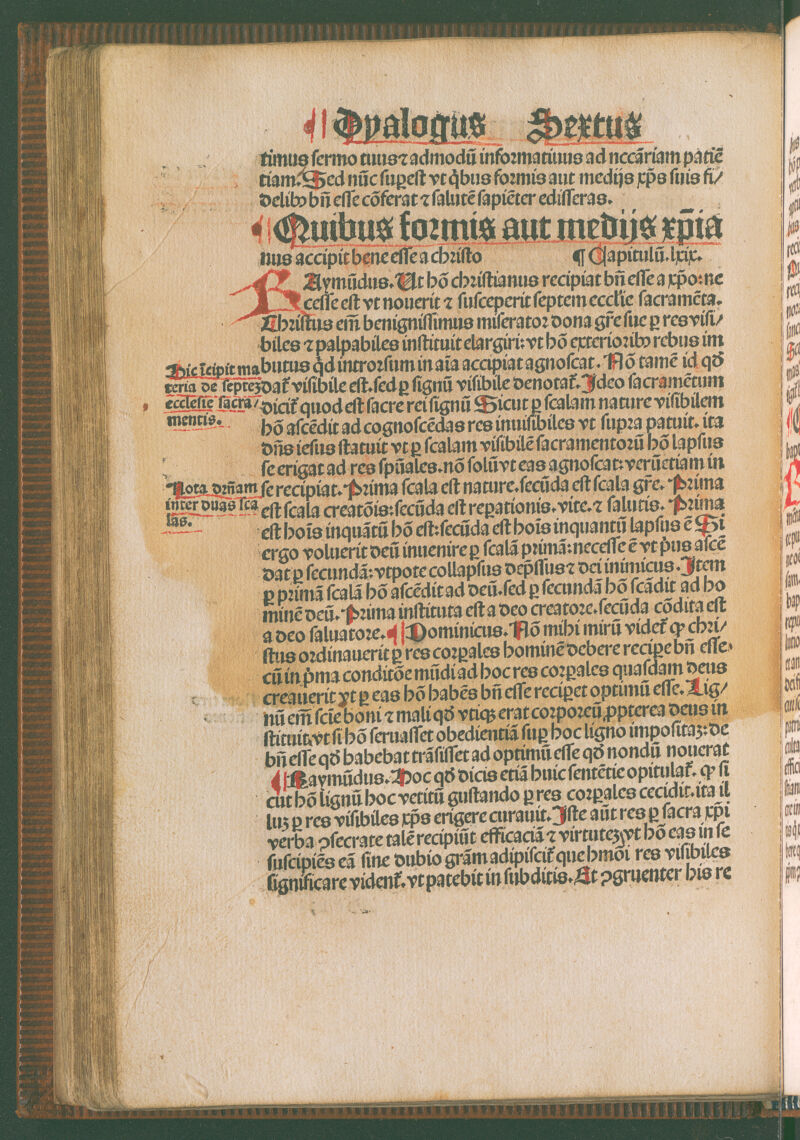 Dyalogus Sextus
timus sermo tuus ⁊ admodū informatiuus ad nccāriam patiē
tiam. Sed nūc supest vt qͥbus formis aut medijs xp̄s suis fi/
delibꝫ bn̄ esse cōferat ⁊ salutē sapiēter edisseras.
Quibus formis aut medijs xp̄ia
nus accipit bene esse a christo ¶ Capitulū.lxix.
RAymūdus. Ut hō christianus recipiat bn̄ esse a xp̄o: ne
cesse est vt nouerit ⁊ susceperit septem eccl'ie sacramēta.
Christus em̄ benignissimus miserator dona gr̄e sue ꝑ res visi/
biles ⁊ palpabiles instituit elargiri: vt hō exterioribꝫ rebus im
butus qͥd introrsum in aīa accipiat agnoscat. Nō tamē id qd̄
dat᷑ visibile est. sed ꝑ signū visibile denotat᷑. Ideo sacramētum
dicit᷑ quod est sacre rei signū Sicut ꝑ scalam nature visibilem
hō ascēdit ad cognoscēdas res inuisibiles vt supra patuit. ita
dn̄s iesus statuit vt ꝑ scalam visibilē sacramentorū hō lapsus
se erigat ad res spūales. nō solū vt eas agnoscat: verūetiam in
se recipiat. Prima scala est nature. secūda est scala gr̄e. Prima
est scala creatōis: secūda est reꝑationis. vite. ⁊ salutis. Prima
est hoīs inquātū hō est: secūda est hoīs inquantū lapsus ē Si
ergo voluerit deū inuenire ꝑ scalā primā: necesse ē vt pͥus ascē
dat ꝑ secundā: vtpote collapsus dep̄ssus ⁊ dei inimicus. Item
ꝑ primā scalā hō ascēdit ad deū. sed ꝑ secundā hō scādit ad ho
minē deū. Prima instituta est a deo creatore. secūda cōdita est
a deo saluatore. Dominicus. Nō mihi mirū videt᷑ ꝙ chri/
stus ordinauerit ꝑ res corꝑales hominē debere recipe bn̄ esse.
cū in pͥma conditōe mūdi ad hoc res corꝑales quasdam deus
creauerit vt ꝑ eas hō habēs bn̄ esse reciꝑet optimū esse. Lig/
nū em̄ scīe boni ⁊ mali qd̄ vtiqꝫ erat corporeū ꝓpterea deus in
stituit, vt si hō seruasset obedientiā suꝑ hoc ligno impositaꝫ: de
bn̄ esse qd̄ habebat trāsisset ad optimū esse qd̄ nondū nouerat
Raymūdus. Hoc qd̄ dicis etiā huic sentētie opitulat᷑. ꝙ si
cut hō lignū hoc vetitū gustando ꝑ res corꝑales cecidit. ita il
luꝫ ꝑ res visibiles xp̄s erigere curauit. Iste aūt res ꝑ sacra xp̄i
verba ꝯsecrate talē recipiūt efficaciā ⁊ virtuteꝫ, vt hō eas in se
suscipiēs eā sine dubio grām adipiscit᷑ que hmōi res visibiles
significare vident᷑. vt patebit in subditis. At ꝯgruenter his re
Hic īcipit ma
teria de septeꝫ
ecclesie sacra/
mentis.
Nota dr̄iam
inter duas sca
las.